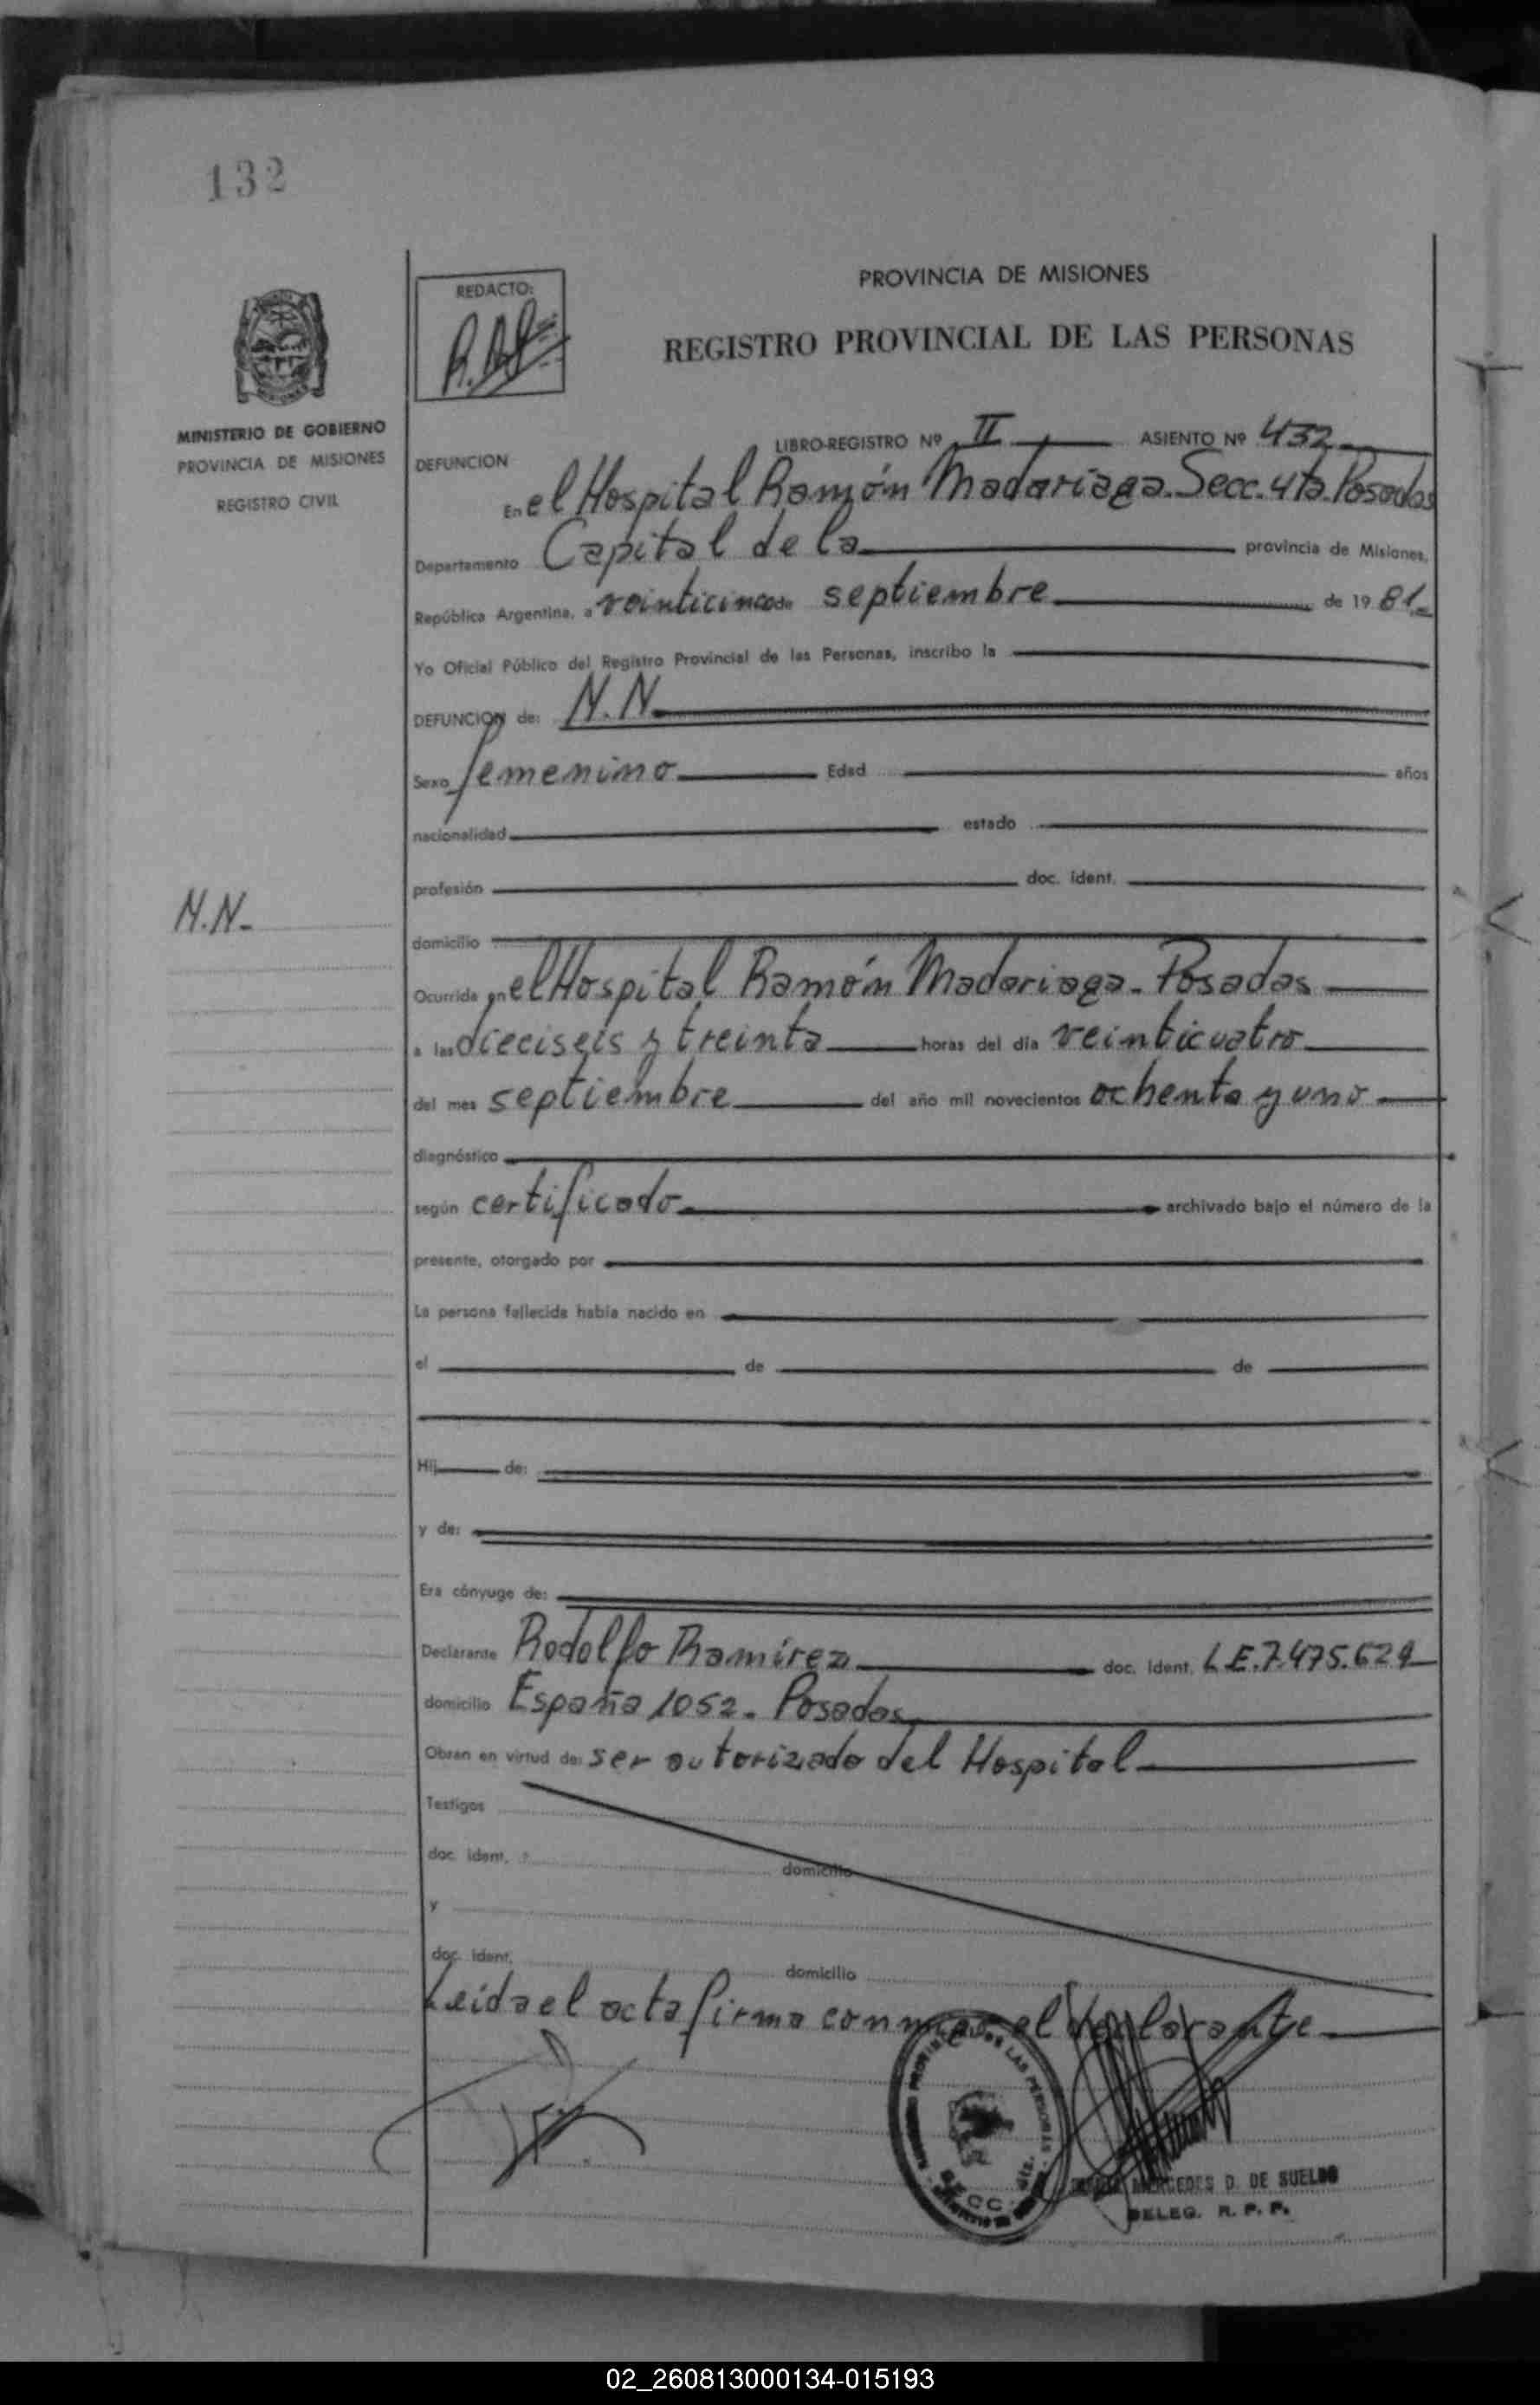 132
REDACTO:
PROVINCIA DE MISIONES
REGISTRO PROVINCIAL DE LAS PERSONAS
MINISTERIO DE GOBIERNO
PROVINCIA DE MISIONES
REGISTRO CIVIL
LIBRO-REGISTRO Nº II ASIENTO Nº 432
DEFUNCION
En el Hospital Ramón Madariaga. Secc. 4ta. Posadas
Departamento Capital de la provincia de Misiones,
República Argentina, a veinticinco de septiembre de 19 81
Yo Oficial Público del Registro Provincial de las Personas, inscribo la
DEFUNCION de: N.N.
Sexo femenino Edad años
nacionalidad estado
profesión doc. ident.
N.N.
domicilio
Ocurrida en el Hospital Ramón Madariaga - Posadas
a las dieciseis y treinta horas del día veinticuatro
del mes septiembre del año mil novecientos ochenta y uno
diagnóstico
según certificado archivado bajo el número de la
presente, otorgado por
La persona fallecida había nacido en
el de de
Hij de:
y de:
Era cónyuge de:
Declarante Rodolfo Ramírez doc. ident. L.E. 7.475.629
domicilio España 1052. Posadas
Obran en virtud de: ser autorizado del Hospital
Testigos
doc. ident. domicilio
y
doc. ident. domicilio
Leida el acta firma conmigo el declarante
MERCEDES D. DE SUELDO
DELEG. R. P. P.
02_260813000134-015193